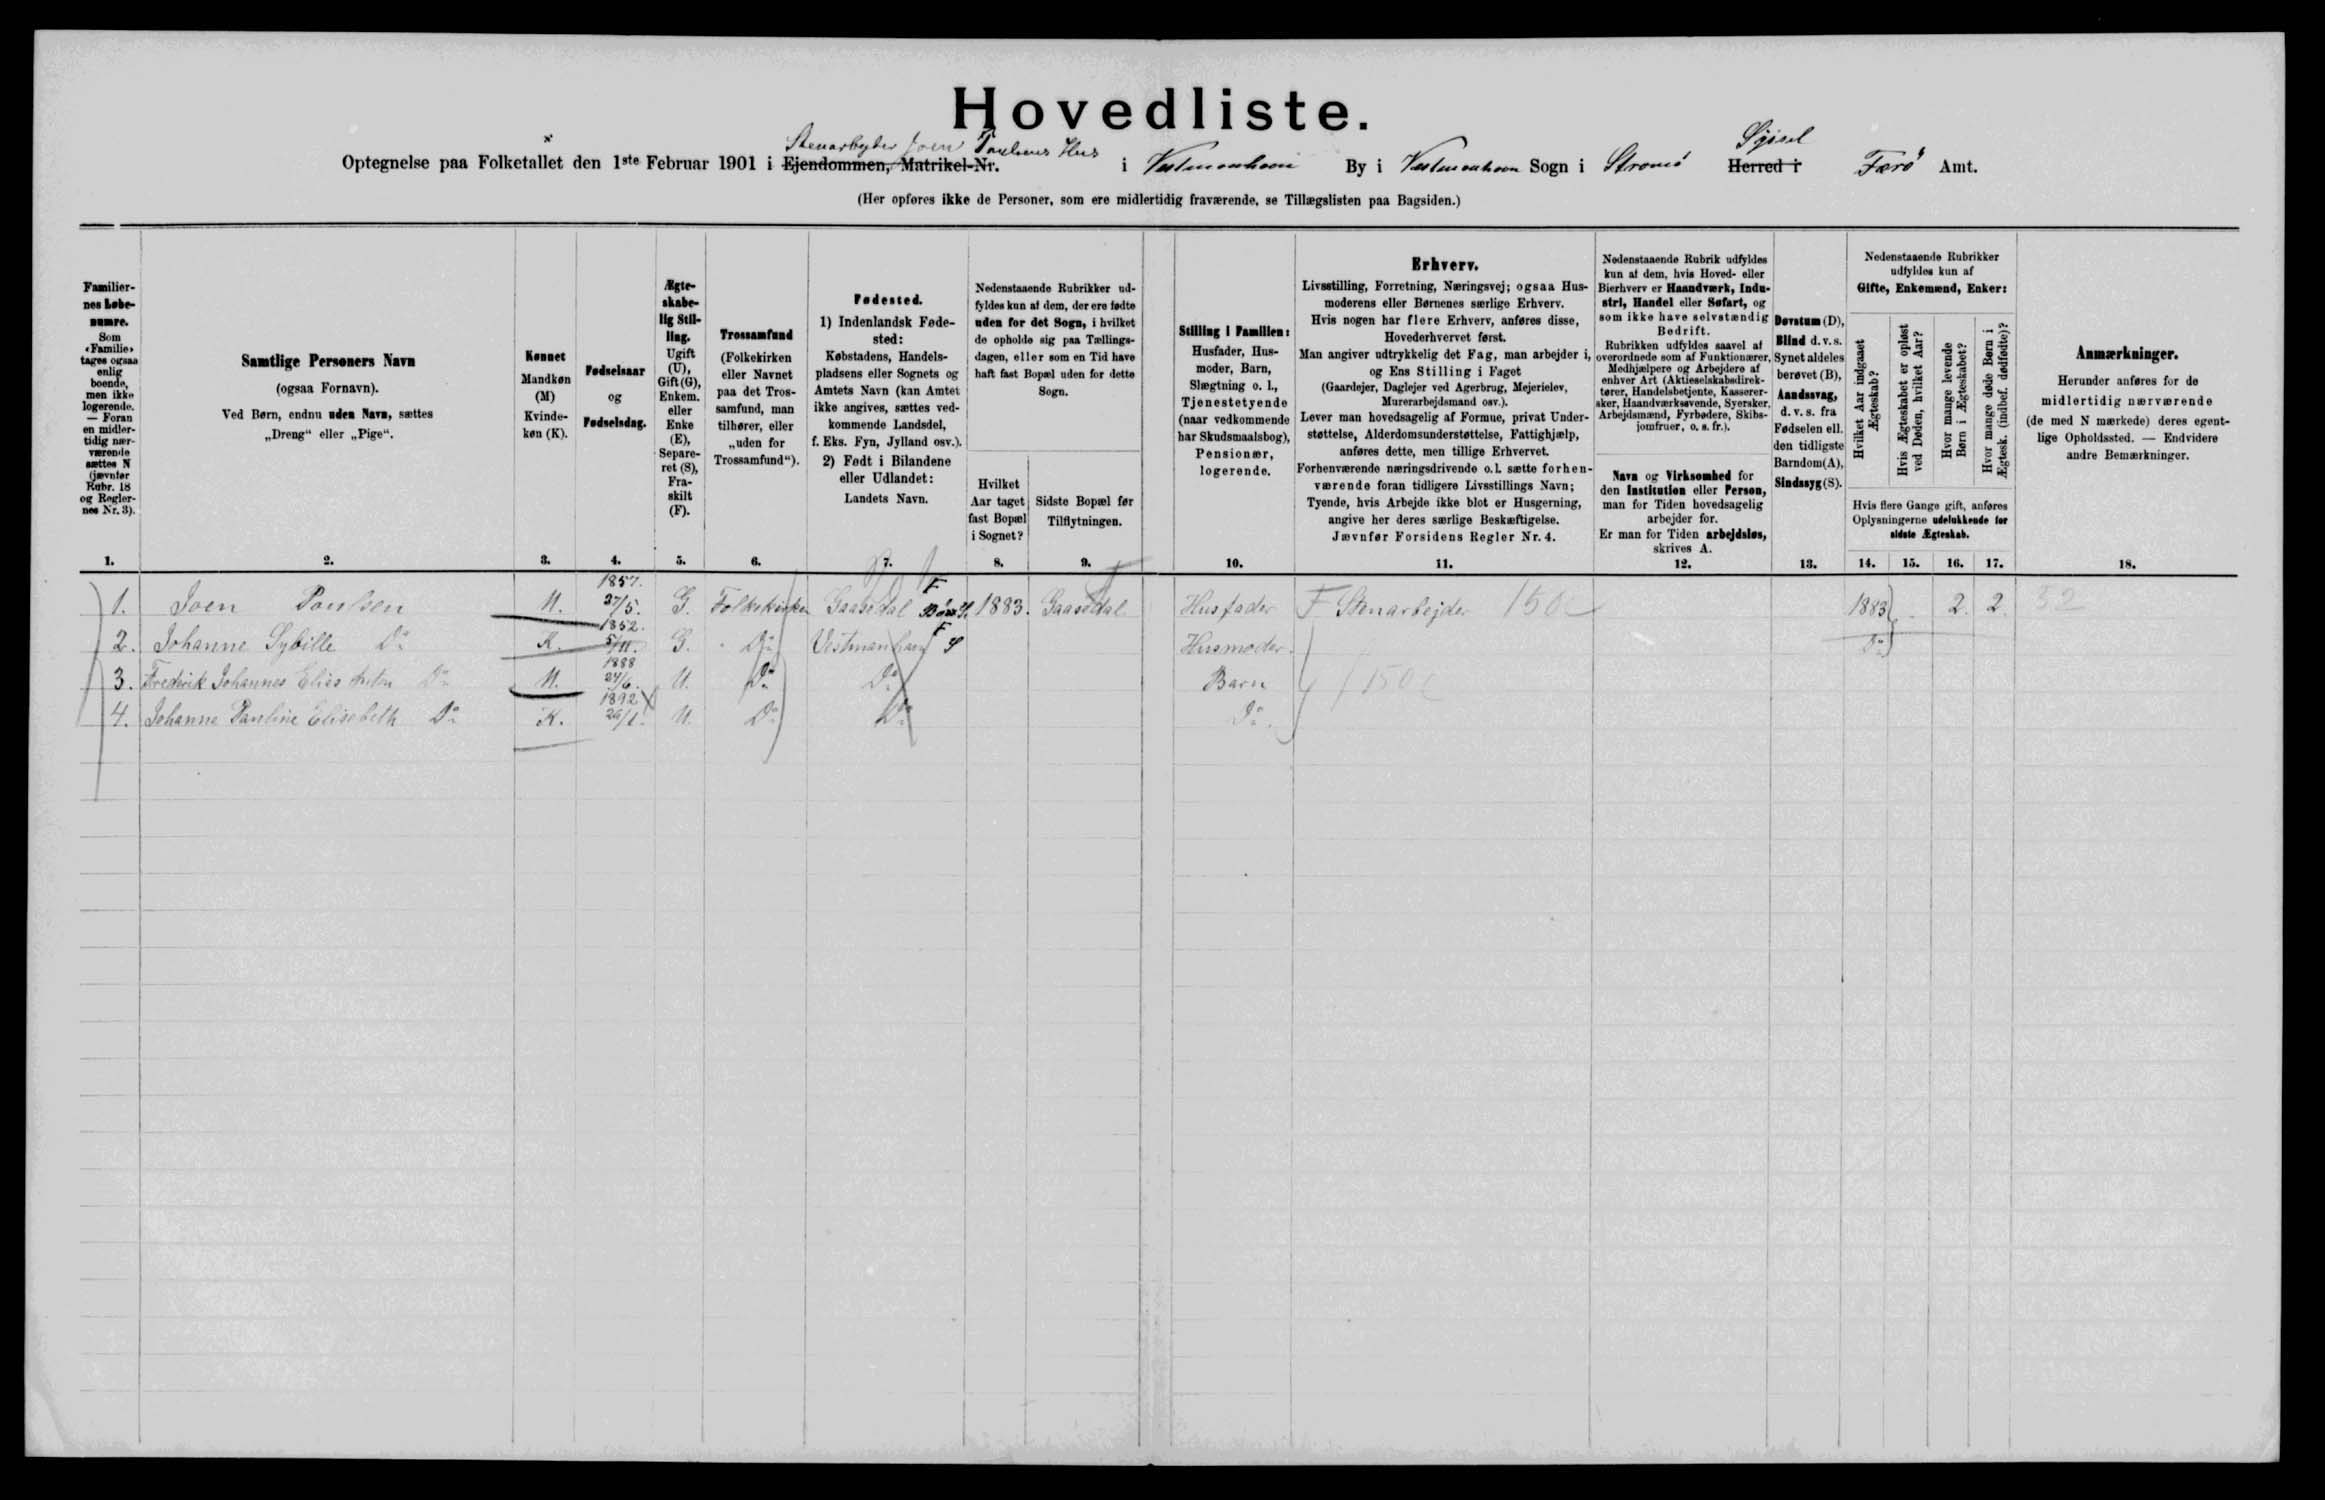 Hovedliste.
Stenarbejder Joen Poulsens Hus
Sysel
Optegnelse paa Folketallet den 1ste Februar 1901 i Ejendommen, Matrikel-Nr. i Vestmanhavn By i Vestmanhavn Sogn i Strømø Herred i Færø Amt.
(Her opføres ikke de Personer, som ere midlertidig fraværende, se Tillægslisten paa Bagsiden.)
Familiernes Løbenumre.
Som «Familie» tages ogsaa enlig boende, men ikke logerende. — Foran en midlertidig nærværende sættes N (jævnfør Rubr. 18 og Reglernes Nr. 3).
Samtlige Personers Navn
(ogsaa Fornavn).
Ved Børn, endnu uden Navn, sættes
„Dreng“ eller „Pige“.
Kønnet
Mandkøn (M)
Kvindekøn (K).
Fødselsaar
og
Fødselsdag.
Ægteskabelig Stilling.
Ugift (U), Gift (G), Enkem. eller Enke (E), Separeret (S), Fraskilt (F).
Trossamfund
(Folkekirken eller Navnet paa det Trossamfund, man tilhører, eller „uden for Trossamfund“).
Fødested.
1) Indenlandsk Fødested:
Købstadens, Handelspladsens eller Sognets og Amtets Navn (kan Amtet ikke angives, sættes vedkommende Landsdel, f. Eks. Fyn, Jylland osv.).
2) Født i Bilandene eller Udlandet:
Landets Navn.
Nedenstaaende Rubrikker udfyldes kun af dem, der ere fødte uden for det Sogn, i hvilket de opholde sig paa Tællingsdagen, eller som en Tid have haft fast Bopæl uden for dette Sogn.
Hvilket Aar taget fast Bopæl i Sognet?
Sidste Bopæl før Tilflytningen.
Stilling i Familien:
Husfader, Husmoder, Barn, Slægtning o. l., Tjenestetyende (naar vedkommende har Skudsmaalsbog), Pensionær, logerende.
Erhverv.
Livsstilling, Forretning, Næringsvej; ogsaa Husmoderens eller Børnenes særlige Erhverv.
Hvis nogen har flere Erhverv, anføres disse, Hovederhvervet først.
Man angiver udtrykkelig det Fag, man arbejder i, og Ens Stilling i Faget
(Gaardejer, Daglejer ved Agerbrug, Mejerielev, Murerarbejdsmand osv.).
Lever man hovedsagelig af Formue, privat Understøttelse, Alderdomsunderstøttelse, Fattighjælp, anføres dette, men tillige Erhvervet.
Forhenværende næringsdrivende o. l. sætte forhenværende foran tidligere Livsstillings Navn; Tyende, hvis Arbejde ikke blot er Husgerning, angive her deres særlige Beskæftigelse.
Jævnfør Forsidens Regler Nr. 4.
Nedenstaaende Rubrik udfyldes kun af dem, hvis Hoved- eller Bierhverv er Haandværk, Industri, Handel eller Søfart, og som ikke have selvstændig Bedrift.
Rubrikken udfyldes saavel af overordnede som af Funktionærer, Medhjælpere og Arbejdere af enhver Art (Aktieselskabsdirektører, Handelsbetjente, Kasserersker, Haandværkssvende, Syersker, Arbejdsmænd, Fyrbødere, Skibsjomfruer, o. s. fr.).
Navn og Virksomhed for den Institution eller Person, man for Tiden hovedsagelig arbejder for.
Er man for Tiden arbejdsløs, skrives A.
Døvstum (D),
Blind d. v. s. Synet aldeles berøvet (B),
Aandssvag, d. v. s. fra Fødselen ell. den tidligste Barndom (A),
Sindssyg (S).
Nedenstaaende Rubrikker udfyldes kun af
Gifte, Enkemænd, Enker:
Hvilket Aar indgaaet Ægteskab?
Hvis Ægteskabet er opløst ved Døden, hvilket Aar?
Hvor mange levende Børn i Ægteskabet?
Hvor mange døde Børn i Ægtesk. (indbef. dødfødte)?
Hvis flere Gange gift, anføres Oplysningerne udelukkende for sidste Ægteskab.
Anmærkninger.
Herunder anføres for de midlertidig nærværende (de med N mærkede) deres egentlige Opholdssted. — Endvidere andre Bemærkninger.
1. 2. 3. 4. 5. 6. 7. 8. 9. 10. 11. 12. 13. 14. 15. 16. 17. 18.
1. Joen Poulsen M. 1857. 27/5. G. Folkekirken Gaasedal F 1883. Gaasedal Husfader F Stenarbejder 150 1883 2. 2. 32
2. Johanne Sybille Do K. 1852. 5/11. G. Do Vestmanhavn F S Husmoder. Do
3. Frederik Johannes Elias Anton Do M. 1888 27/6. U. Do Do Barn 150
4. Johanne Pauline Elisabeth Do K. 1892 26/1. U. Do Do Do.